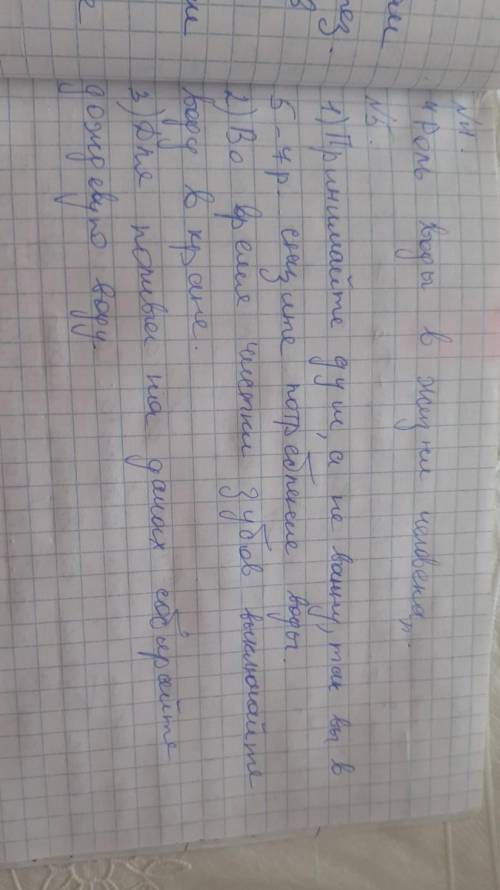 №1.
"Роль воды в жизни человека".
№2.
1) Принимайте душ, а не ванну, так вы в
5-7 р. снизите потребление воды.
2) Во время чистки зубов выключайте
воду в кране.
3) Для поливы на дачах собирайте
дождевую воду.